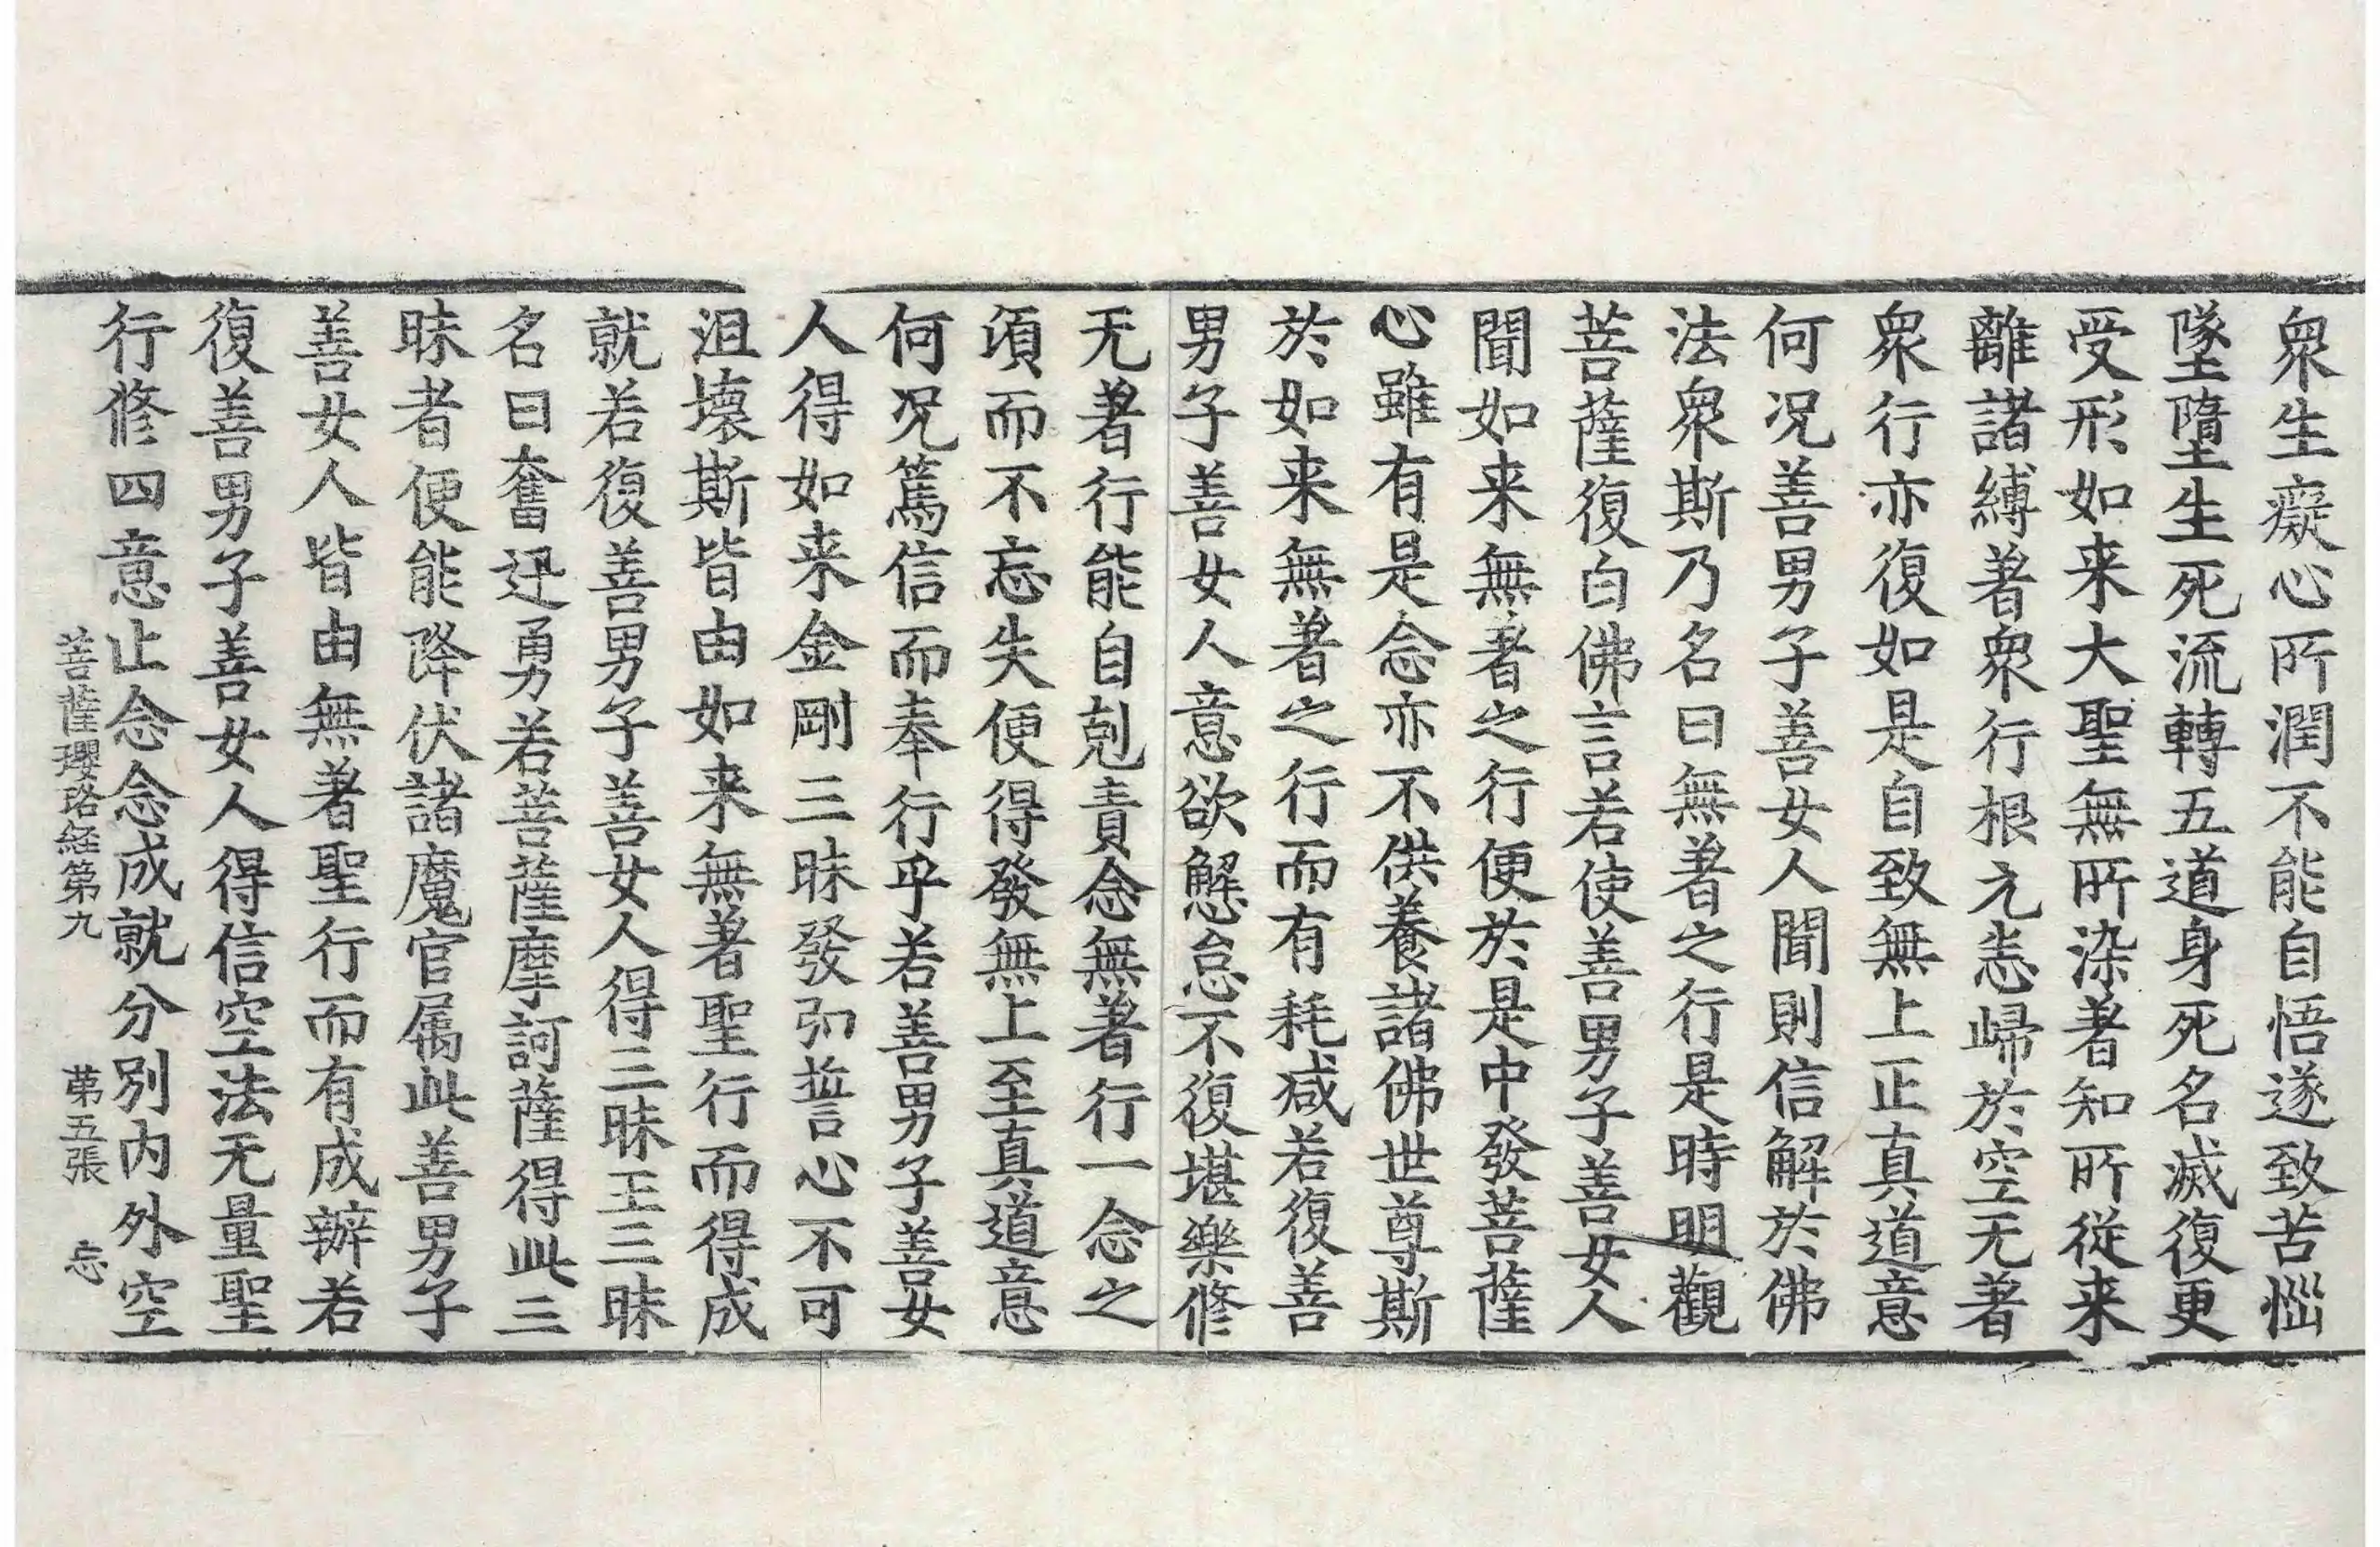 衆生癡心所潤不能自悟遂致苦惱
墜墮生死流轉五道身死名滅復更
受形如来大聖無所染著知所從来
離諸縛著衆行根元悉歸於空无著
衆行亦復如是自致無上正真道意
何况善男子善女人聞則信解於佛
法衆斯乃名曰無著之行是時明觀
菩薩復白佛言若使善男子善女人
聞如来無著之行便於是中發菩薩
心雖有是念亦不供養諸佛世尊斯
於如来無著之行而有耗减若復善
男子善女人意欲懈怠不復堪樂修
无著行能自剋責念無著行一念之
須而不忘失便得發無上至真道意
何况篤信而奉行乎若善男子善女
人得如来金剛三昧發弘誓心不可
沮壞斯皆由如来無著聖行而得成
就若復善男子善女人得三昧王三昧
名曰奮迅勇若菩薩摩訶薩得此三
昧者便能降伏諸魔官属此善男子
善女人皆由無著聖行而有成辦若
復善男子善女人得信空法无量聖
行修四意止念念成就分別内外空
菩薩瓔珞経第九 第五張 忘